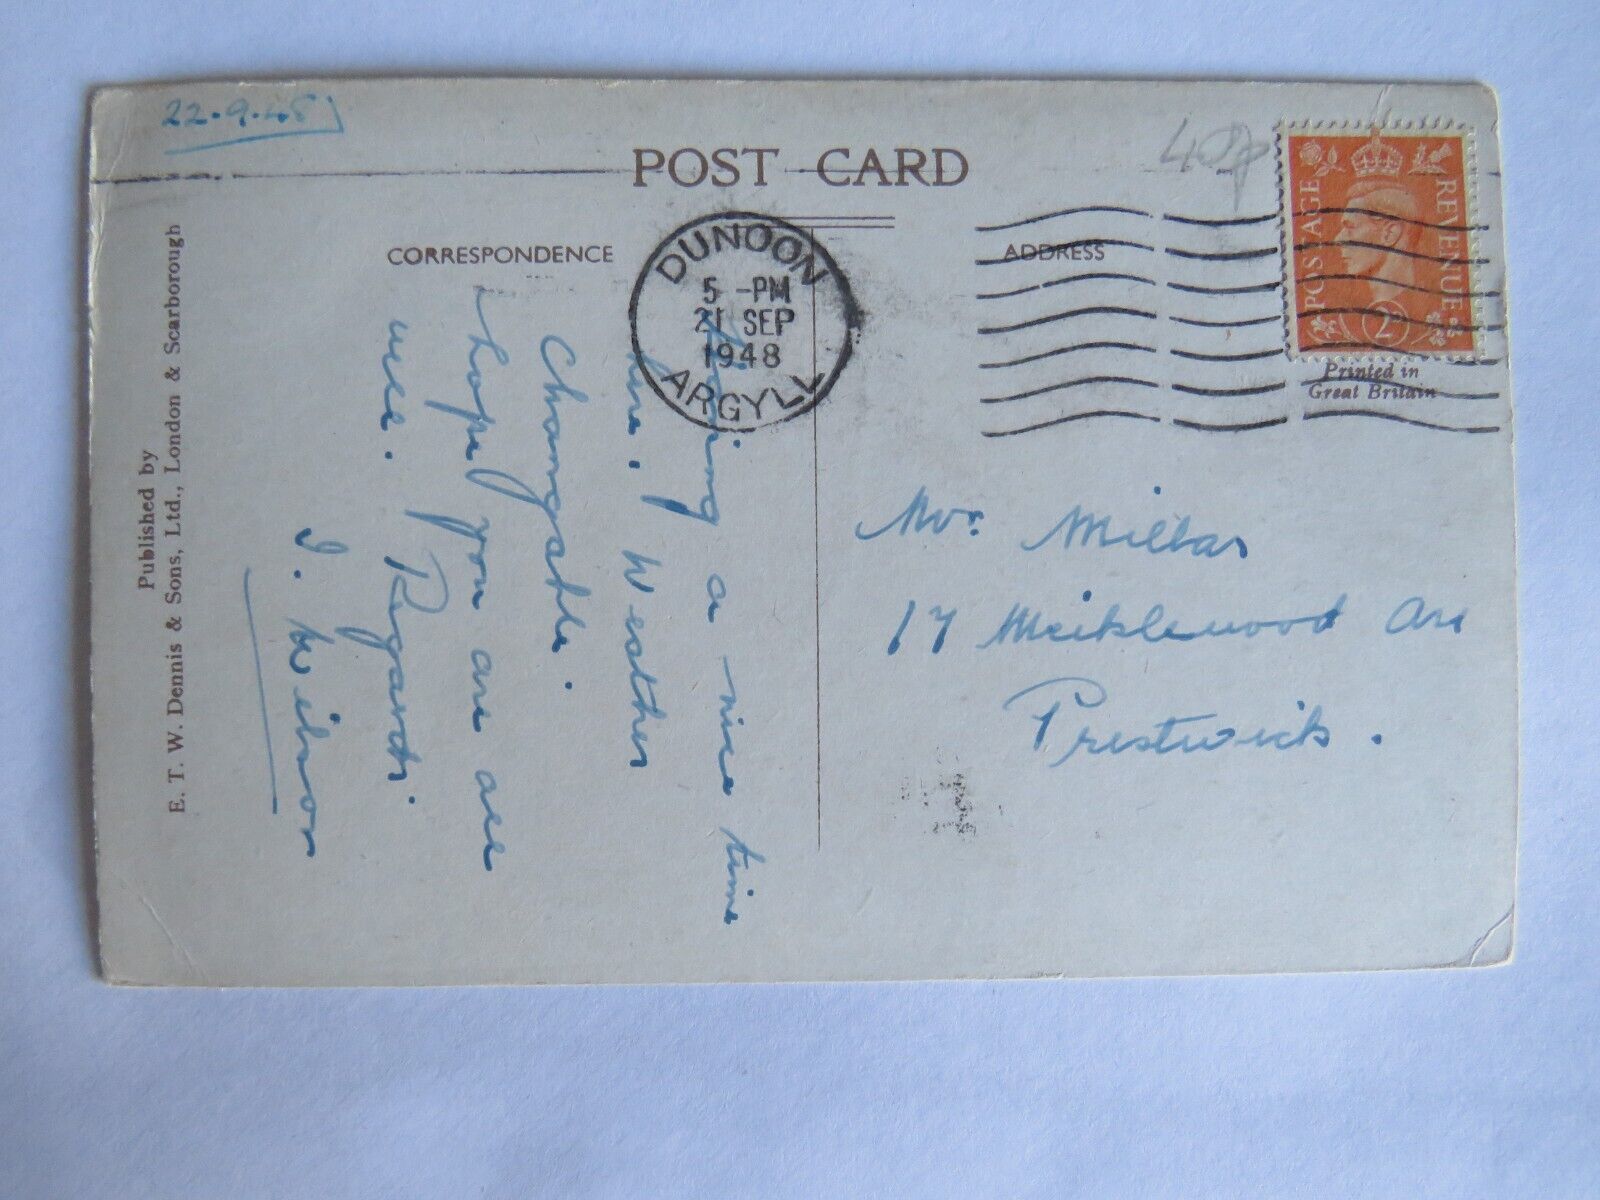 22.9.48
POST CARD
40p
CORRESPONDENCE
ADDRESS
DUNOON
5 -PM
21 SEP
1948
ARGYLL
POSTAGE REVENUE
2D
Printed in
Great Britain
Having a nice time
here. Weather
Changeable.
hope you are all
well. Regards
I. Wilson
Mr. Millar
17 Meiklewood Ave
Prestwick.
Published by
E. T. W. Dennis & Sons, Ltd., London & Scarborough